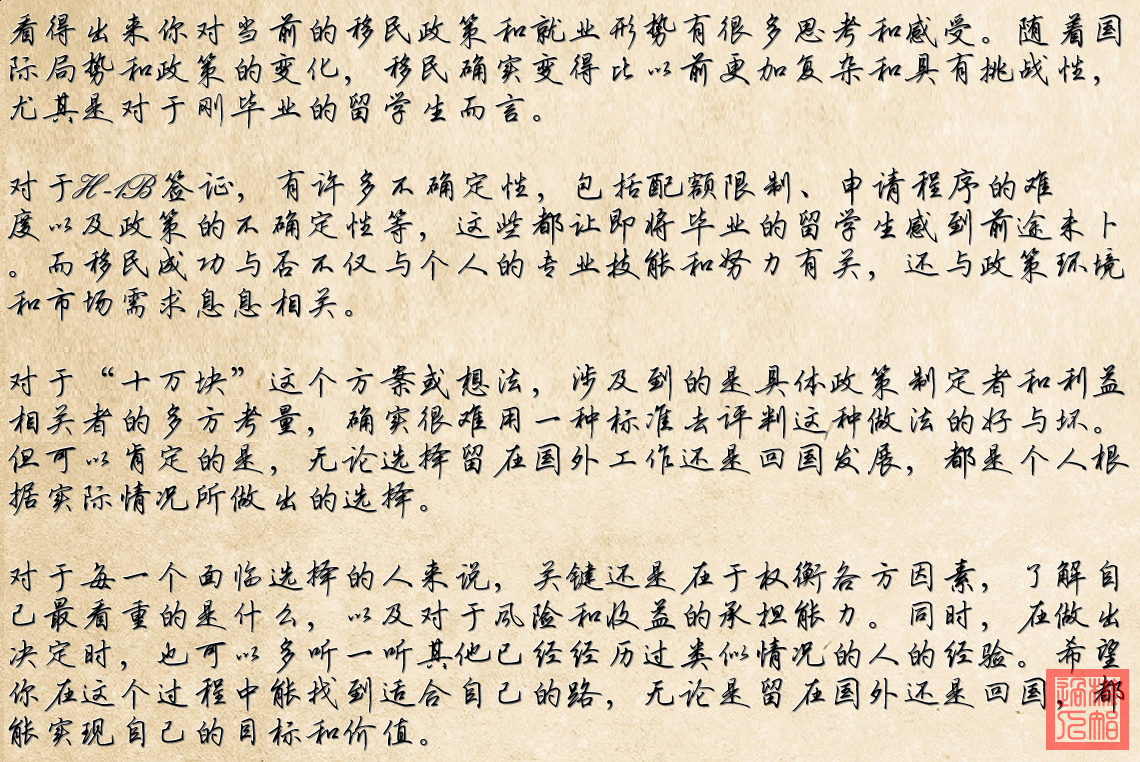 看得出来你对当前的移民政策和就业形势有很多思考和感受。随着国
际局势和政策的变化，移民确实变得比以前更加复杂和具有挑战性，
尤其是对于刚毕业的留学生而言。
对于H-1B签证，有许多不确定性，包括配额限制、申请程序的难
度以及政策的不确定性等，这些都让即将毕业的留学生感到前途未卜
。而移民成功与否不仅与个人的专业技能和努力有关，还与政策环境
和市场需求息息相关。
对于“十万块”这个方案或想法，涉及到的是具体政策制定者和利益
相关者的多方考量，确实很难用一种标准去评判这种做法的好与坏。
但可以肯定的是，无论选择留在国外工作还是回国发展，都是个人根
据实际情况所做出的选择。
对于每一个面临选择的人来说，关键还是在于权衡各方因素，了解自
己最看重的是什么，以及对于风险和收益的承担能力。同时，在做出
决定时，也可以多听一听其他已经经历过类似情况的人的经验。希望
你在这个过程中能找到适合自己的路，无论是留在国外还是回国，都
能实现自己的目标和价值。